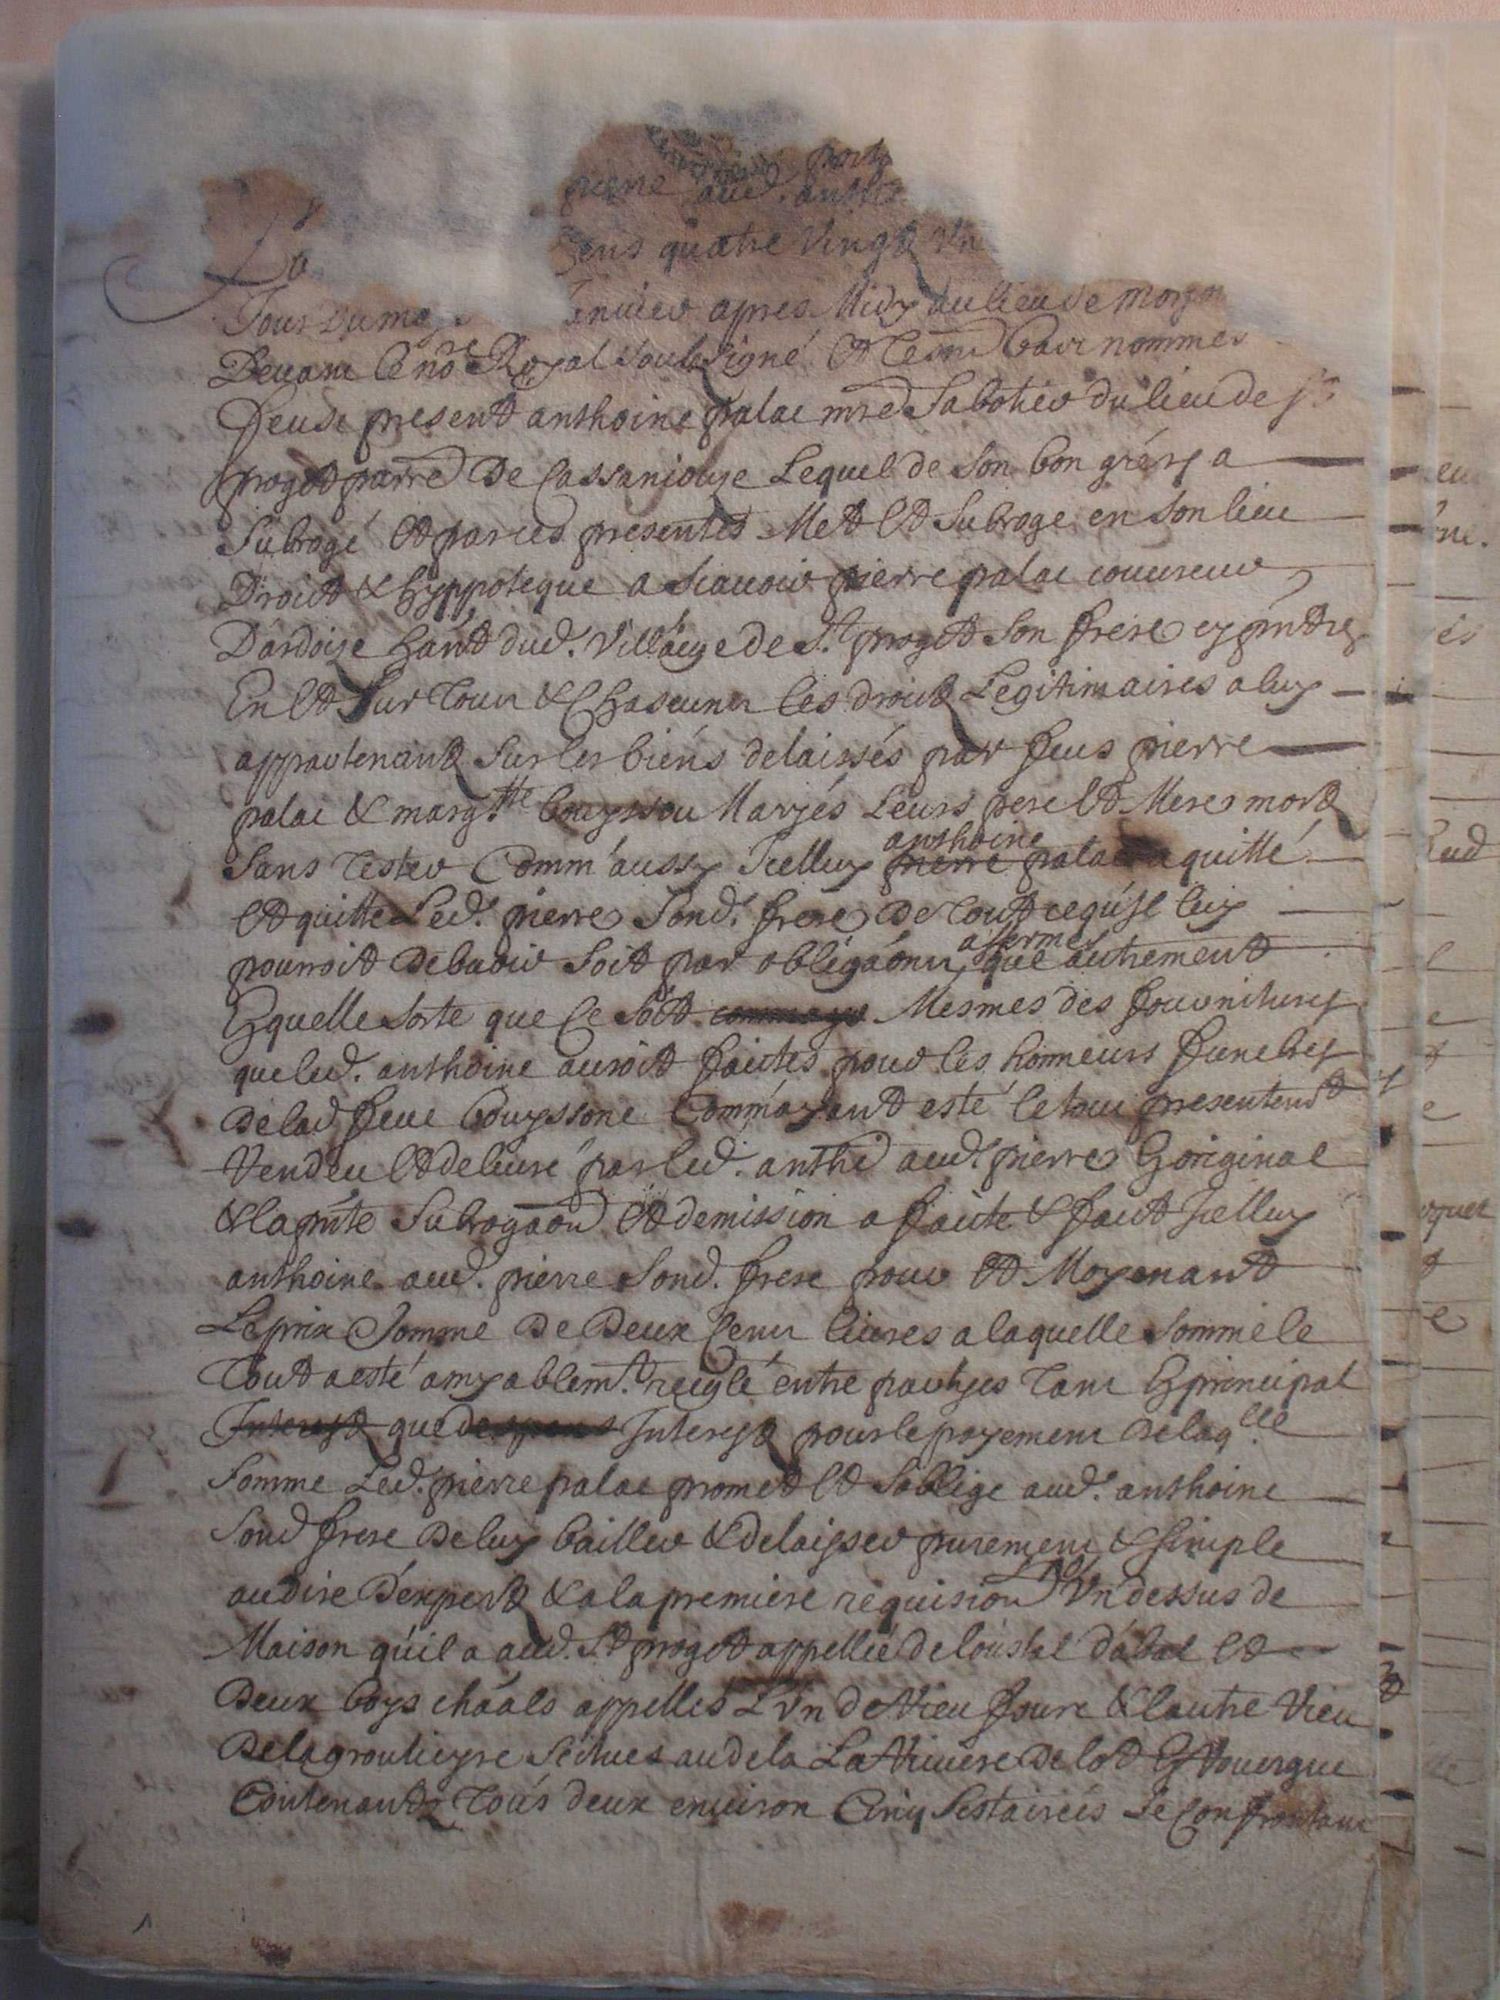 pierre aud. anth
cens quatre Vingt Un
Jour du moy Janvier apres Midy au lieu de Monsa
Devant le no.re Royal soubsigné Et Tesm bas nommes
feust present anthoine palac mre Sabotier du lieu de St
proget parre De Cassaniouze Lequel de Son bon gré a
Subrogé Et par ces presentes Met Et Subroge en son lieu
Droict & hyppoteque a Scauoir pierre palac couureur
D'ardoise hant dud. Villaige de St. proget Son frere
En Et Sur Tour & Chascuns les droict Legitimaires a luy
appartenant Sur les biens delaissés par feus pierre
palac & margtte bouyssou Maryés Leurs pere Et Mere mort
Sans Tester Comm'aussy Jcelluy anthoine palac a quitté
Et quitte Led. pierre Sond. frere De tout cequ'jl luy
pourroit Debuoir Soit par obligaon, affermes que autrement
Equelle Sorte que Ce Soit Mesmes des fournitures
que led. anthoine auroit faites pour les honneurs funebres
De lad feue bouyssone Comm'ayant esté le tout presentemt
Vendeu Et deliuré par led. anthe aud. pierre Eoriginal
& la pnte Subrogaon Et demission a faite & fait Jcelluy
anthoine aud. pierre Sond. frere pour Et Moyenant
Le prix Somme De Deux Cens liures a laquelle Somme le
Tout a esté amyablemt. reiglé entre partyes Tant Eprincipal
Interest que despans Interest pour le payement De laqlle
Somme Led. pierre palac promet Et Soblige aud. anthoine
Sond frere De luy bailler & delaisser purement & Simple
au dire D'expert & a la premiere requision Un dessus de
Maison qu'il a aud. St proget appellée De loustal d'abal Et
Deux boys chaals appelles L'Un de Rieu foure & lautre Rieu
De lagroulieyre Scitues au dela La Riuiere De lot ERouergue
Contenant Tous deux enuiron Cinq Sestairées Se Confrontant